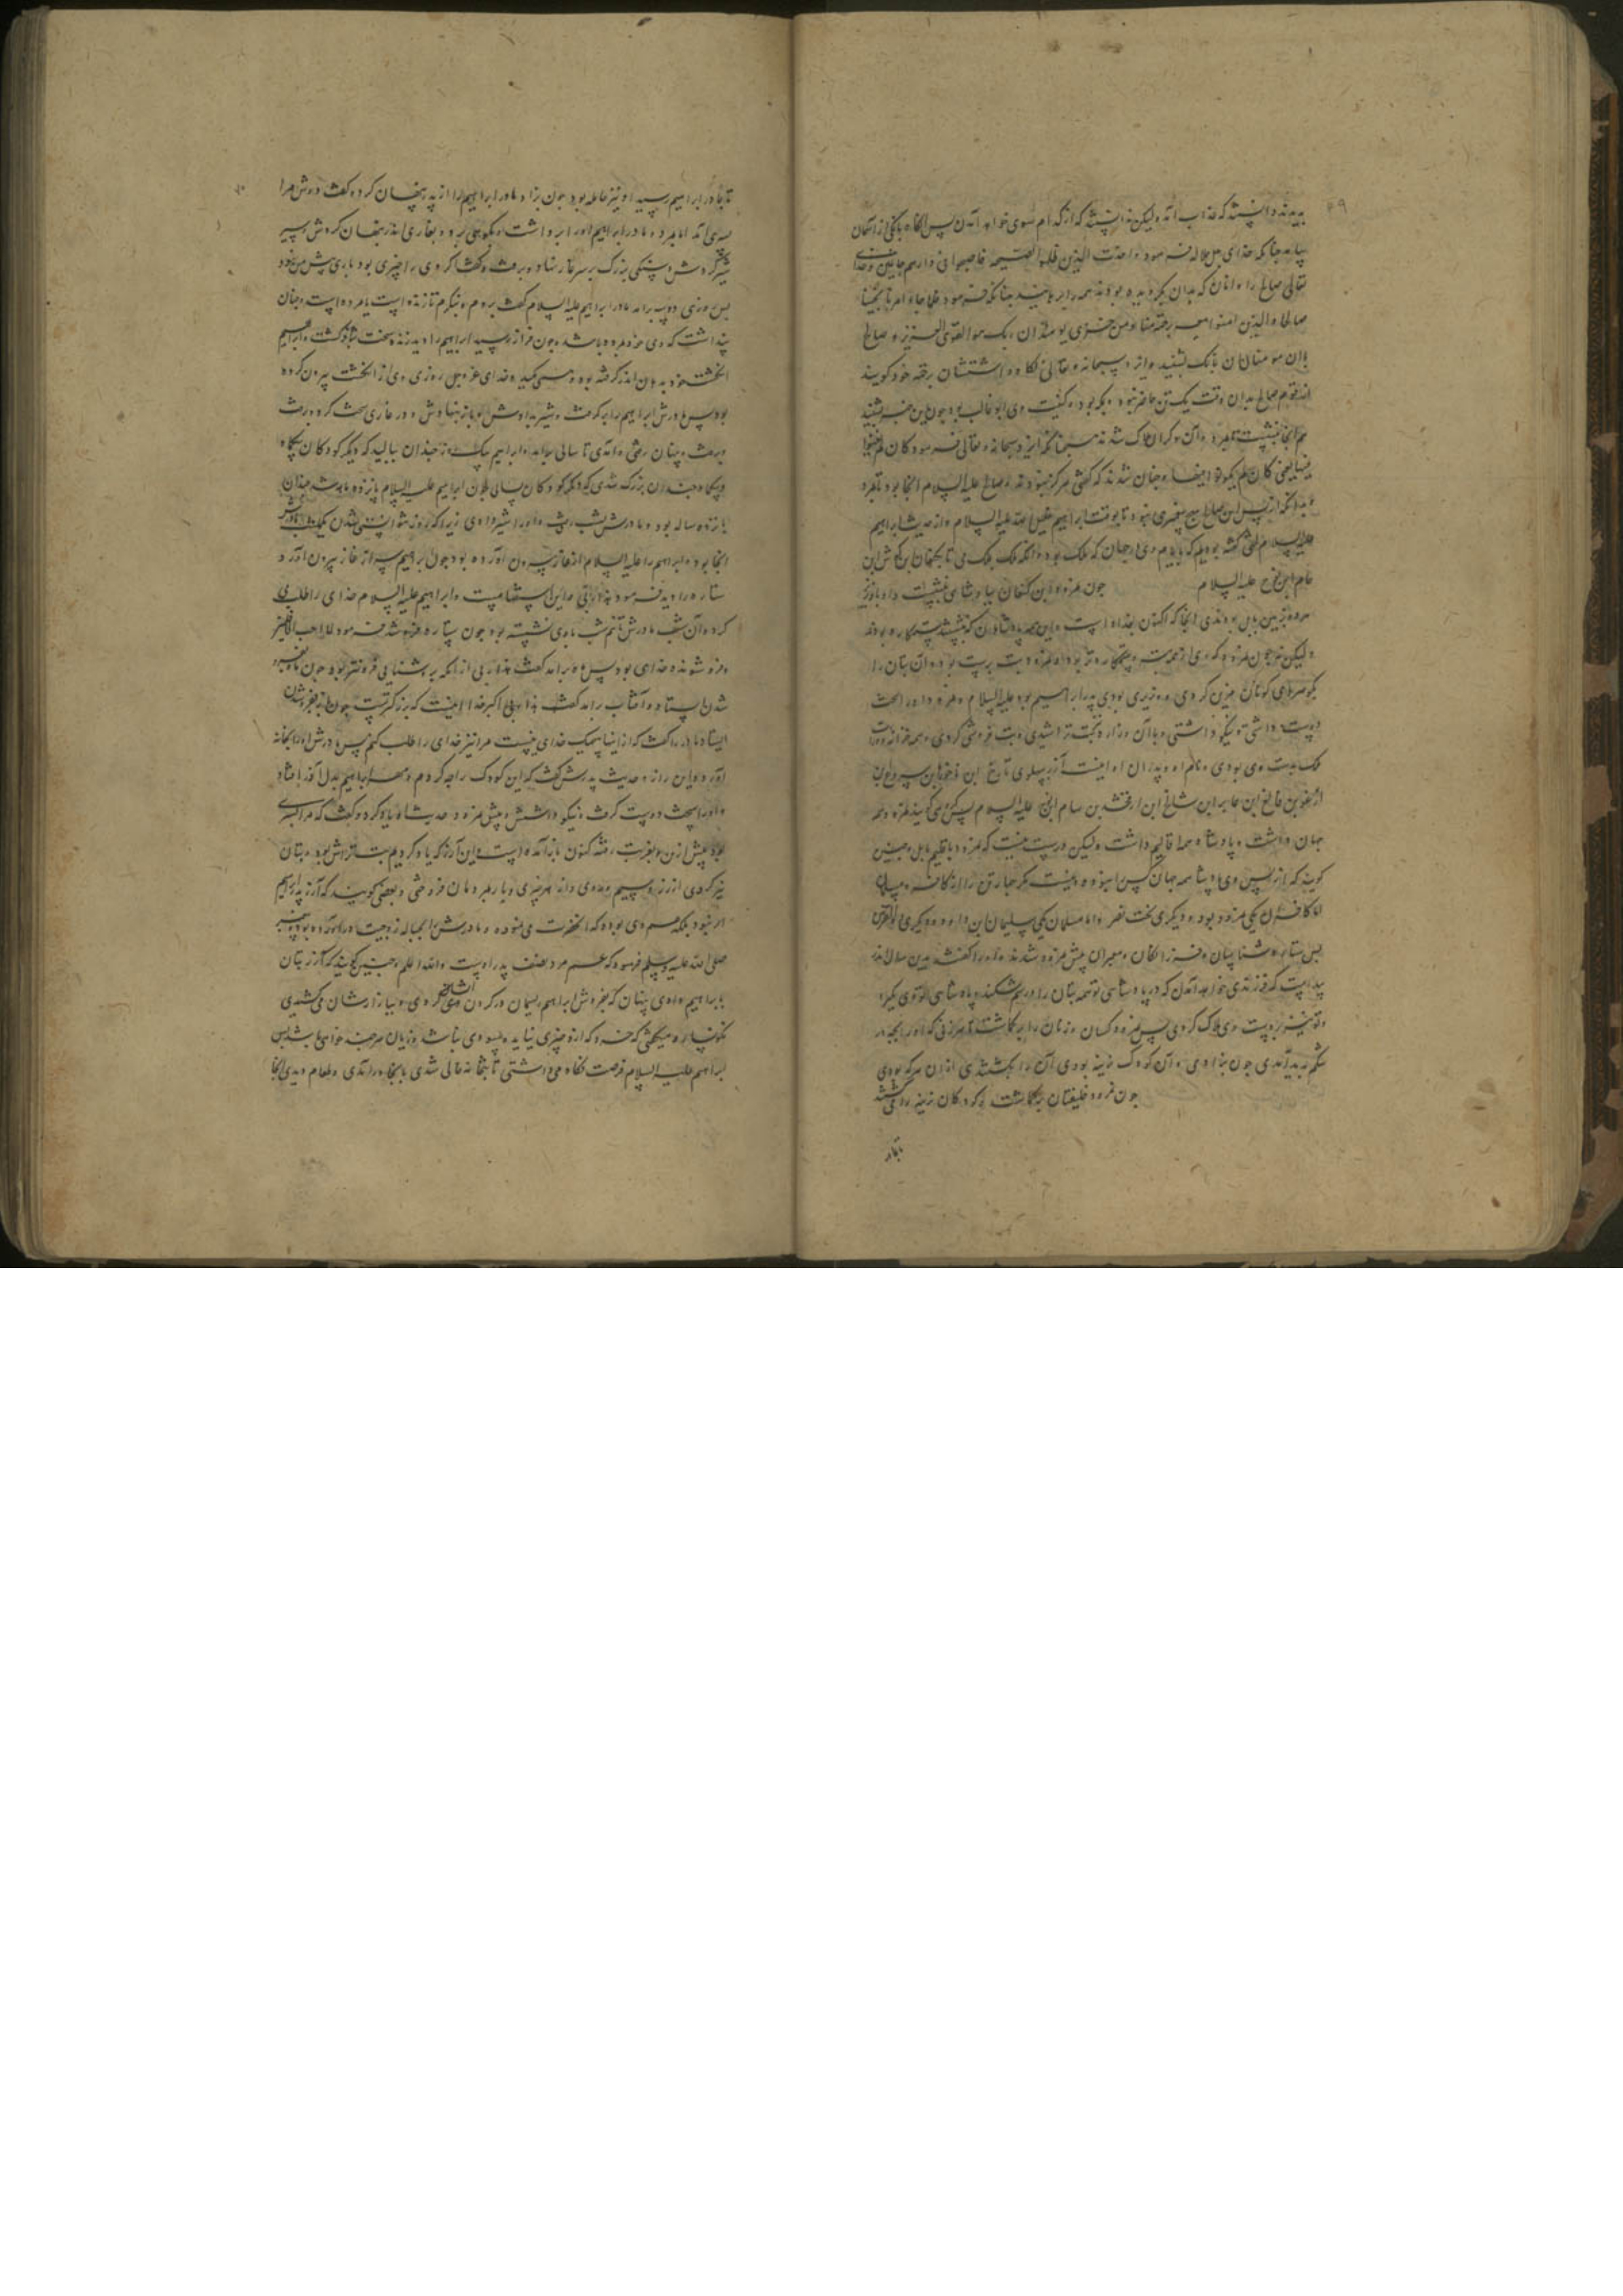 ۴۹
بدیدند دانستند که عذاب آمد ولیکن ندانستند که از کدام سوی خواهد آمدن پس آنگاه بانگی از آسمان
بیامد چنانکه خدای جل جلاله فرمود و اخذت الذین ظلموا الصیحة فاصبحوا فی دارهم جاثمین و خدای
تعالی صالح را و آنان که بدان بگرویده بودند همه را برهانید چنانکه فرمود فلما جاء امرنا نجینا
صالحا والذین امنوا معه برحمة منا ومن خزی یومئذ ان ربک هو القوی العزیز و صالح
با آن مومنان آن بانک بشنید و ایزد سبحانه و تعالی نگاه داشتشان برحمة خود کویند
از قوم صالح بدان وقت یک تن حاضر نبود و بمکه بود و کنیت وی ابو غالب بود چون این خبر بشنید
هم انجا بنشست تا بمرد و آن دیکران هلاک شدند چنانکه ایزد سبحانه و تعالی فرمود کان لم یغنوا
فیها یعنی کان لم یکونوا فیها و چنان شدند که کفتی هرکز نبودند و صالح علیه السلام انجا بود تا بمرد
و بدانکه از پس این صالح هیچ پیغمبری نبود تا بوقت ابراهیم خلیل الله علیه السلام و از حدیث ابراهیم
علیه السلام کفته بودیم که بایام وی در جهان که ملک بود و آنکه ملک ملک می تا بکنعان بن کوش بن
حام ابن نوح علیه السلام چون نمرود بن کنعان بپادشاهی بنشست و او
نمرود بزمین بابل بودندی انجا که اکنون بغداد است و این همه پادشاهان که بنشستند ستمکاره بودند
ولیکن نه چون نمرود که وی از همه بت و ستمکاره تر بود و نمرود بت پرست بود و آن بتان را
بکوهرهای کوناکون مزین کردی و وزیری بودی پدر ابراهیم بود علیه السلام و نمرود او را سخت
دوست داشتی و نیکو داشتی و با آن وزارت بت تراشیدی و بت فروشی کردی و همه خزانه
ملک بدست وی بودی و نام او و پدران او اینست آزر بپهلوی تارخ ابن ناخور ابن سروع بن
ارغو بن فالغ ابن عابر ابن شالخ ابن ارفخشد بن سام ابن نوح علیه السلام پس کویند نمرود همه
جهان داشت و پادشاه همه اقالیم داشت ولیکن درست نیست که نمرود باقلیم بابل و چنین
کویند که از پس وی پادشاه همه جهان کس را نبوده و نیست مکر چهار تن را از کافر و مسلمان
اما کافران یکی نمرود بود و دیکری بخت نصر و اما مسلمان یکی سلیمان ابن داود و دیکری ذوالقرنین
پس ستاره شناسان و فرزانکان و معبران پیش نمرود شدند و او را کفتند بدین سال اندر
پیداست که فرزندی خواهد آمدن که در پادشاهی تو همه بتان را درهم شکند و پادشاهی از تو بکیرد
و تو نیز بردست وی هلاک کردی پس نمرود کسان و زنان را برکماشت تا هر زنی که او را بچه در
شکم پدید آمدی چون بزادی و آن کودک نرینه بودی آن را بکشتندی
چون نمرود خلیفتان برکماشت که کودکان نرینه را می کشتند
تا بمادر
۵۰
تا بمادر ابراهیم رسید او نیز حامله بود چون بزاد مادر ابراهیم را از پدر پنهان کرد و کفت دوش مرا
پسری آمد اما بمرد و مادر ابراهیم او را برداشت و بکوهی برد و بغاری اندر پنهان کردش و سیر
شیر کردش و سنکی بزرک بر سر غار نهاد و برفت و کفتا کر وی را چیزی بود باری پیش من نبود
پس روزی دو سه برآمد مادر ابراهیم علیه السلام کفت بروم و بنکرم تا زنده است یا مرده است و چنان
پنداشت که وی خود مرده باشد چون فراز رسید ابراهیم را دید زنده سخت شاد کشت و ابراهیم
انکشت خود بدهان اندر کرفته بود و همی مکید و خدای عز و جل روزی وی از انکشت بیرون کرده
بود پس مادرش ابراهیم را برکرفت و شیر بدادش و باز بنهادش و در غار سخت کرد و برفت
و برفت و چنان رفتی و آمدی تا سالی برآمد و ابراهیم بیک روز چندان بالید که دیکر کودکان بیکماه
و بیکماه چندان بزرک شدی که دیکر کودکان بسالی چون ابراهیم علیه السلام پانزده ماهه شد چندان
پانزده ساله بود و مادرش شب رفتی و او را شیر دادی زیرا که روز نتوانستی شدن یکشب مادرش
انجا بود و ابراهیم را علیه السلام از غار بیرون آورده بود چون ابراهیم سر از غار بیرون آورد
ستاره را دید فرمود هذا ربی و این استفهامیست و ابراهیم علیه السلام خدای را طلب می
کرد و آن شب مادرش تا نیم شب با وی نشسته بود چون ستاره فرو شد فرمود لا احب الافلین
و فرو شونده خدای نبود پس ماه برآمد کفت هذا ربی از آنکه بروشنایی فزونتر بود چون ماه
شدن ایستاد و آفتاب برآمد کفت هذا ربی اکبر خدا اینست که بزرکترست چون
ایستاد مادر را کفت که از اینها هیچیک خدای نیست مرا نیز خدای را طلب کنم پس مادرش او را بخانه
آورد و این راز و حدیث پدرش کفت که این کودک را چه کردم و مهر ابراهیم بدل آذر افتاد
و او را سخت دوست کرفت و نیکو داشتش و پیش نمرود حدیث او یاد کرد و کفت که مرا پسری
بود پیش ازین بغربت رفته کنون باز آمده است و این آزر که یاد کردیم بت تراش بود و بتان
نیز کردی از زر و سیم و مادی و از هر چیزی و با مردمان فروختی و بعضی کویند که آزر پدر ابراهیم
نبود بلکه عم وی بوده که تربیت می نموده و مادرش بحباله زوجیت در آورده بود پیغمبر
صلی الله علیه وسلم فرموده که عم مرد صنف پدر اوست والله اعلم و چنین کویند که آزر بتان
بابراهیم دادی پنهان که بفروش ابراهیم ریسمان در کردن ایشان کردی و ببازار شان می کشیدی
نکونسار و میکفتی که خرد که ازو چیزی نیاید و سودی نباشد و زیان هر چند خواهی باشد پس
ابراهیم علیه السلام فرصت نکاه می داشتی تا بتخانه خالی شدی بانجا در آمدی و طعام دیدی انجا